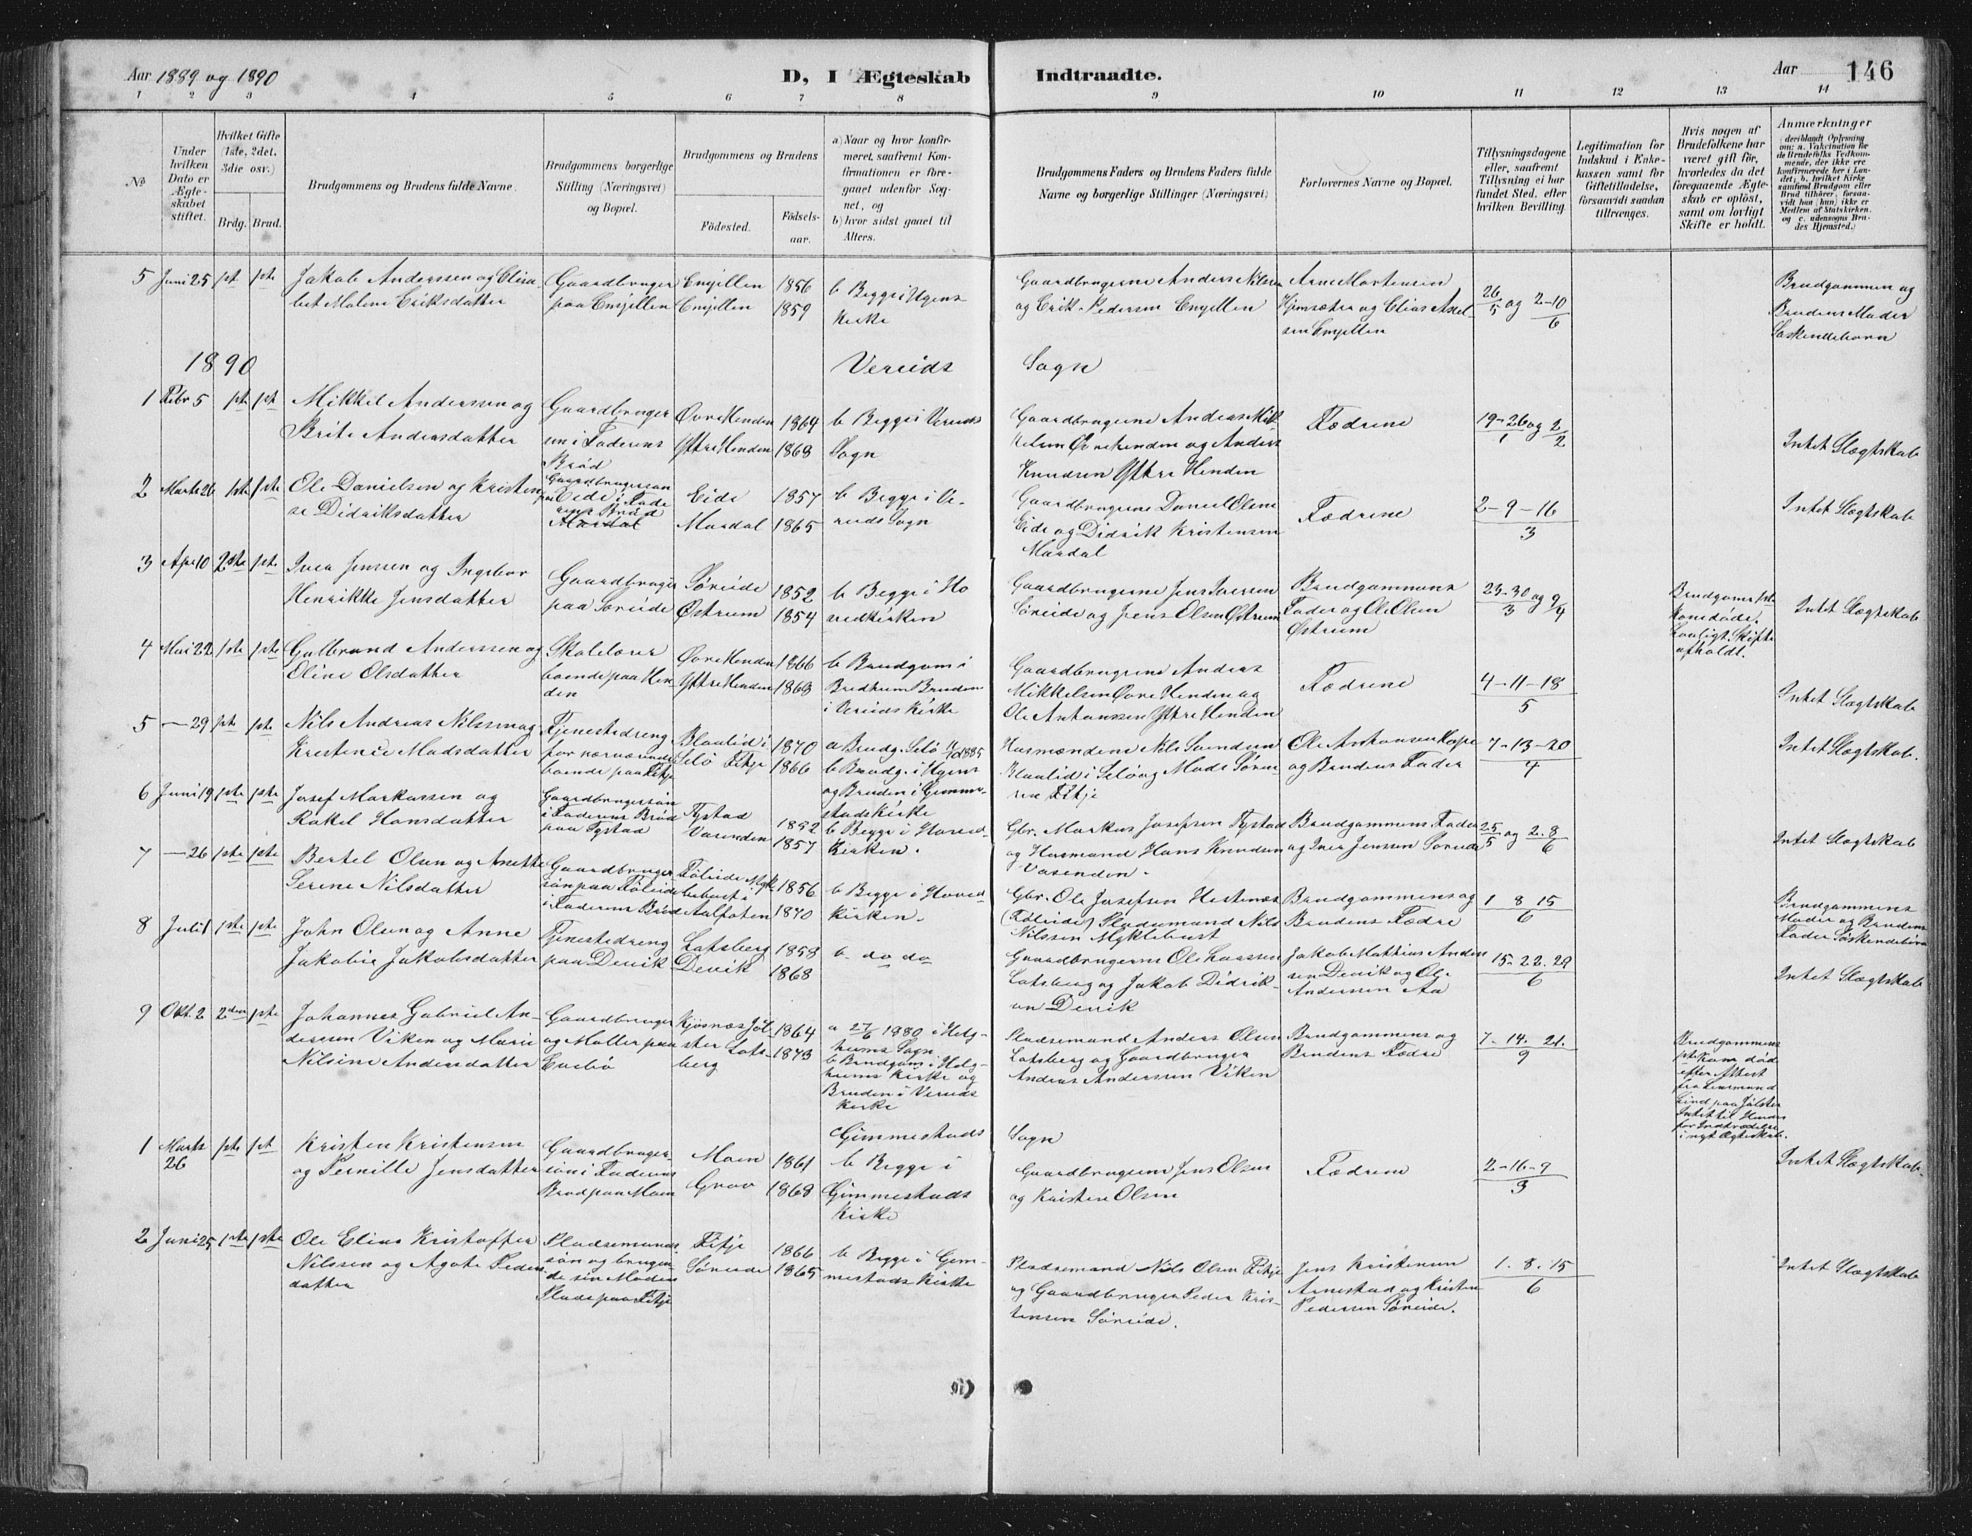 Aar 1889 og 1890
D, I Ægteskab Indtraadte.
Aar 146
1 2 3 4 5 6 7 8 9 10 11 12 13 14
№
Under
hvilken
Dato er
Ægte-
skabet
stiftet.
Hvilket Gifte
(1ste, 2det,
3die osv.)
Brdg. Brud.
Brudgommens og Brudens fulde Navne.
Brudgommens borgerlige
Stilling (Næringsvei)
og Bopæl.
Brudgommens og Brudens
Fødested.
Fødsels-
aar.
a) Naar og hvor konfir-
meret, saafremt Kon-
firmationen er fore-
gaaet udenfor Sog-
net, og
b) hvor sidst gaaet til
Alters.
Brudgommens Faders og Brudens Faders fulde
Navne og borgerlige Stillinger (Næringsvei)
Forlovernes Navne og Bopæl.
Tillysningsdagene
eller, saafremt
Tillysning ei har
fundet Sted, efter
hvilken Bevilling.
Legitimation for
Indskud i Enke-
kassen samt for
Giftetilladelse,
forsaavidt saadan
tiltrænges.
Hvis nogen af
Brudefolkene har
været gift før,
hvorledes da det
foregaaende Ægte-
skab er opløst,
samt om lovligt
Skifte er holdt.
Anmærkninger
(deriblandt Oplysning
om: a. Vakcination for
de Brudefolks Vedkom-
mende, der ikke ere
konfirmerede her i Lan-
det; b. hvilket Kirke-
samfund Brudgom eller
Brud tilhører, forsaa-
vidt han (hun) ikke er
Medlem af Statskirken,
og c. udensogns Bru-
des Hjemsted.)
5 Juni 25 1st 1ste
Jakob Anderssen og Elisa-
bet Malene Eriksdatter
Gaardbruger
paa Emjellen
Emjellen 1856
Emjellen 1859
b Begge i Hgens
Kirke
Gaardbrugerne Anders Nilsen
og Erik Pedersen Emjellen
Arne Mortensen
Hjemsæter og Elias Axel-
sen Emjellen
26/5 og 2-10/6
Brudgommen og
Brudens Moder
Søskendebørn
1890 Vereids Sogn
1 Febr 5 1ste 1ste
Mikkel Anderssen og
Brite Andersdatter
Gaardbruger
søn i Faderens
Brød
Øvre Henden 1864
Yttre Henden 1868
b Begge i Vereids
Sogn
Gaardbrugerne Anders Mik-
kelsen Øvre Henden og Anders
Knudsen Yttre Henden
Fædrene
19-26/1 og 2/2
Intet Slægtskab
2 Marts 26 1ste 1ste
Ole Danielsen og Kristen-
se Didriksdatter
Gaardbrugersøn
paa Eide i Fade
rens Brød
Mardal
Eide 1857
Mardal 1865
b Begge i Ve-
reids Sogn
Gaardbrugerne Daniel Olsen
Eide og Didrik Kristensen
Mardal
Fædrene
2-9-16/3
Intet Slægtskab
3 Apr 10 2den 1ste
Iver Jensen og Ingebor
Henrikke Jensdatter
Gaardbruger
paa Søreide
Søreide 1852
Østrem 1854
b Begge i Ho
vedkirken
Gaardbrugerne Jens Iversen
Søreide og Jens Olsen Østrem
Brudgommens
Fader og Ole Olsen
Østrem
23-30/3 og 9/4
Brudgoms 1ste
Kone døde.
Lovligt Skifte
afholdt.
Intet Slægtskab
4 Mai 22 1ste 1ste
Gulbrand Anderssen og
Oline Olsdatter
Skolelærer
boende paa Hen
den
Øvre Henden 1866
Yttre Henden 1863
b Brudgom i
Bredheim Bruden
i Vereids Kirke
Gaardbrugerne Anders
Mikkelsen Øvre Henden og
Ole Antonssen Yttre Henden
Fædrene
4-11-18/5
Intet Slægtskab
5 — 29 1ste 1ste
Nils Andreas Nilssen og
Kristence Madsdatter
Tjenestedreng
for nærværende
boende paa Fitje
Blaalid i 1870
Selø Fitje 1866
a Brudg. Selø 1885
b Brudg. i Hgens
og Bruden i Gimme-
stads Kirke
Husmændene Nils Svendsen
Blaalid i Selø og Mads Søren
sen Fitje
Ole Antonsen Hope
og Brudens Fader
7-13-20/4
Intet Slægtskab.
6 Juni 19 1ste 1ste
Josef Markussen og
Rakel Hansdatter
Gaardbrugersøn
i Faderens Brød
paa Tystad
Tystad 1852
Vasenden 1857
b Begge i Hoved-
Kirken.
Gbr. Markus Josefsen Tystad
og Husmand Hans Knudsen
Vasenden.
Brudgommens Fader
og Iver Jenssen Søreide
25/5 og 2.8/6
Intet Slægtskab
7 — 26 1ste 1ste
Bertel Olsen og Anethe
Serene Nilsdatter
Gaardbruger
søn paa Føleide
i Faderens Brød
Føleide Myk- 1856
lebust i
Aalfoten 1870
b Begge i Hoved-
kirken.
Gbr. Ole Josefsen Hestenæs
(Føleide) Pladsemand Nils
Nilssen Myklebust
Brudgommens og
Brudens Fædre
1 8 15/6
Brudgommens
Moder og Brudens
Fader Søskendebørn
8 Juli 1 1ste 1ste
John Olsen og Anne
Jakobie Jakobsdatter
Tjenestedreng
paa Devik
Lotsberg 1858
Devik 1868
b. do do
Gaardbrugerne Ole Larssen
Lotsberg og Jakob Didrik-
sen Devik
Jakob Mathias Anders
sen Devik og Ole
Anderssen Aa
15-22-29/6
Intet Slægtskab
9 Okt. 2 2den 1ste
Johannes Gabriel An-
dersen Viken og Marie
Nilsine Andersdatter
Gaardbruger
og Møller paa
Evebø
Kjøsnæs Jøl- 1864
ster Lots- 1873
berg
a 27/6 1880 i Helg-
heims Sogn
b Brudgom i Helg-
heims Kirke og
Bruden i Vereids
Kirke
Pladsemand Anders Olsen
Lotsberg og Gaardbruger
Anders Anderssen Viken
Brudgommens og
Brudens Fædre
7-14-21./9
Brudgommens
1ste Kone død
efter Attest
fra Lensmand
Lind paa Jølster
Intet til Hinder
for Indtrædelse
i nyt Ægteskab.
Gimmestads Sogn
1 Marts 26 1ste 1ste
Kristen Kristensen
og Pernille Jensdatter
Gaardbruger-
søn i Faderens
Brød paa Moen
Moen 1861
Grov 1868
b Begge i
Gimmestads
Kirke
Gaardbrugerne Jens Olsen
og Kristen Olsen
Fædrene
2-16-9/3
Intet Slægtskab
2 Juni 25 1ste 1ste
Ole Elias Kristoffer
Nilssen og Agote Peders
datter
Pladsemands
søn og brugen-
de sin Moders
Plads paa Fitje
Fitje 1866
Søreide 1865
b Begge i Gim-
mestads Kirke
Pladsemand Nils Olsen Fitje
og Gaardbruger Peder Kris-
tensen Søreide.
Jens Kristensen
Arnestad og Kristen
Pedersen Søreide.
1.8.15/6
Intet Slægtskab